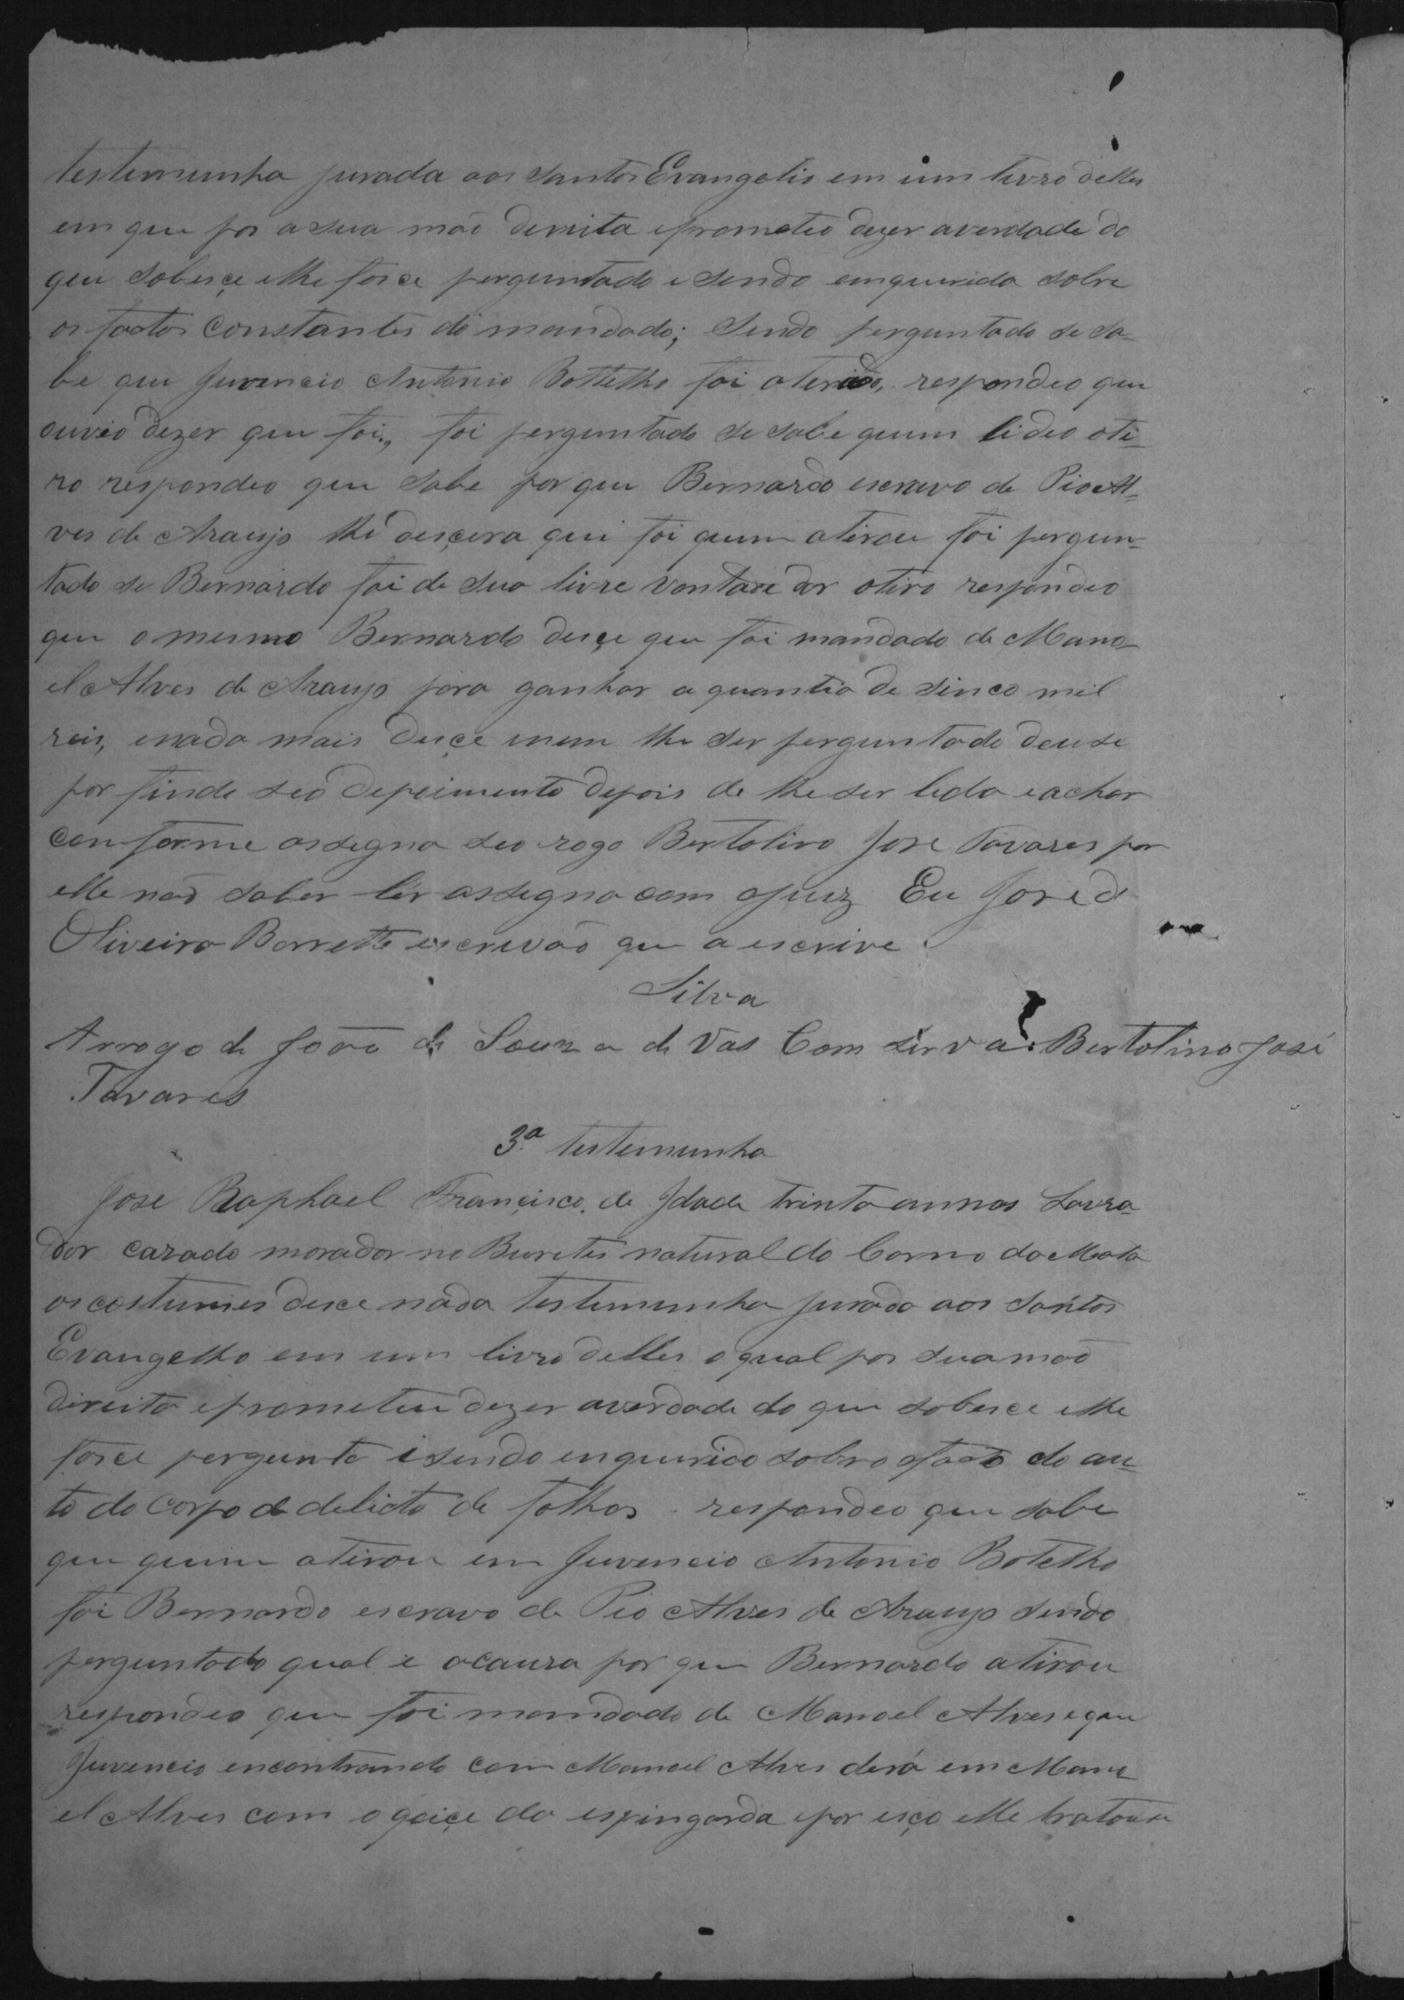 testemunha jurada aos Santos Evangelis em um livro delles
em que pos a sua mão direita eprometeo dezer averdade do
que sobesçe elhe force perguntado e sendo emquerido sobre
os factos constantes do mandado; Sendo perguntado se sa-
be que Juvencio Antonio Bottelho foi atirado, respondeo que
ouvio dezer que foi, foi perguntado se sabe quem li deo oti-
ro respondeo que sabe por que Bernardo escravo de Pio Al-
ves de Araujo lhe desçera que foi quem atirou foi pergun-
tado se Bernardo foi de sua livre vontade dar otiro respondeo
que o mesmo Bernardo desçe que foi mandado de Mano-
el Alves de Araujo para ganhar a quantia de sinco mil
reis, enada mais desçe enem lhe ser perguntado deuse
por findo seo depoimento depois de lhe ser lido eachar
conforme assegna seo rogo Bertolino Jose Tavares por
elle não saber ler assegna com ojuiz Eu Jose d
Oliveira Barretto escrivão que a escrive
Silva
Arrogo de João de Souza de Vas Com Sirva. Bertolino José
Tavares
3ª testemunha
Jose Raphael Francisco, de Idade trinta annos Lavra-
dor cazado morador no Buretes natural do Carmo da Mata
os costumes desce nada testemunha jurado aos Santos
Evangelho em um livro delles oqual pos sua mão
direita eprometeu dezer averdade do que sobesce elhe
force pergunto isendo enquerido sobre ofacto do au-
to do corpo de delicto de folhas respondeo que sabe
que quem atirou em Juvencio Antonio Botelho
foi Bernardo escravo de Pio Alves de Araujo sendo
perguntado qual e acauza por que Bernardo atirou
respondeo que foi mandado de Manoel Alves eque
Juvencio encontrando com Manoel Alves derá em Mano-
el Alves com o qoiçe da espingarda epor esço elle tratouse